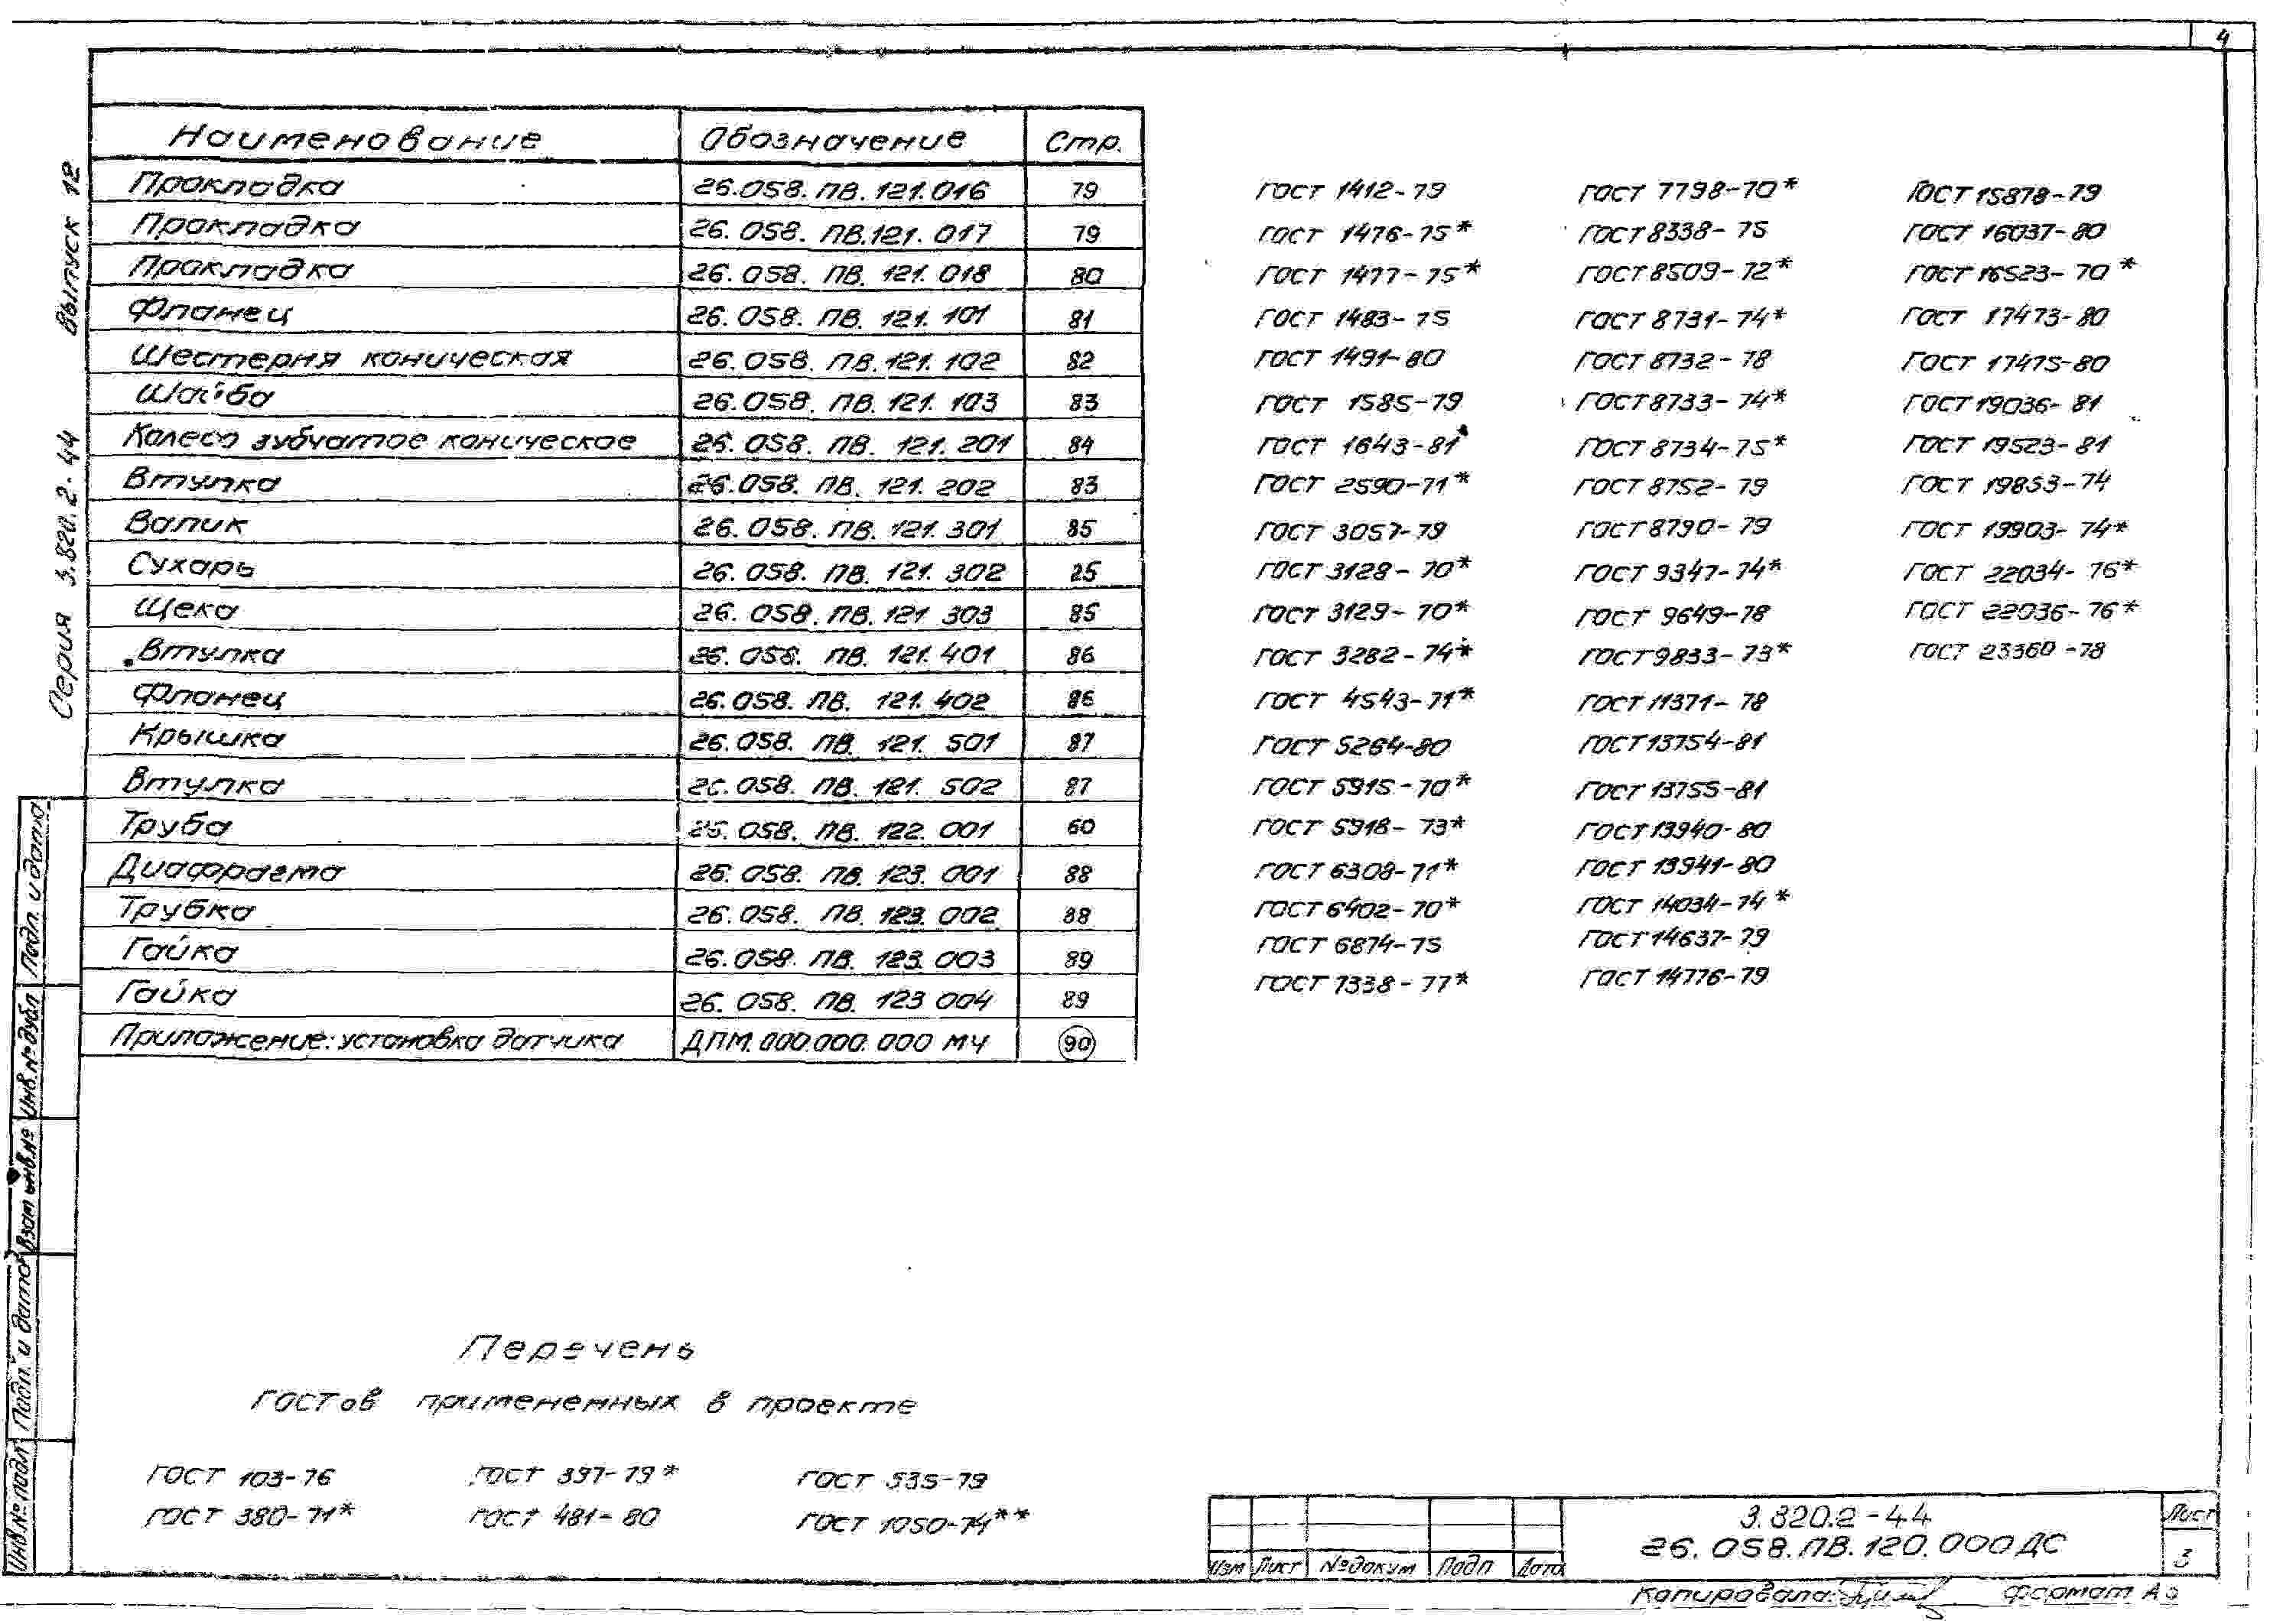 4
Наименование Обозначение Стр.
Прокладка 26.058.ПВ.121.016 79
Прокладка 26.058.ПВ.121.017 79
Прокладка 26.058.ПВ.121.018 80
Фланец 26.058.ПВ.121.101 81
Шестерня коническая 26.058.ПВ.121.102 82
Шайба 26.058.ПВ.121.103 83
Колесо зубчатое коническое 26.058.ПВ.121.201 84
Втулка 26.058.ПВ.121.202 83
Валик 26.058.ПВ.121.301 85
Сухарь 26.058.ПВ.121.302 25
Щека 26.058.ПВ.121 303 85
Втулка 26.058.ПВ.121.401 86
Фланец 26.058.ПВ.121.402 86
Крышка 26.058.ПВ.121.501 87
Втулка 26.058.ПВ.121.502 87
Труба 26.058.ПВ.122.001 60
Диафрагма 26.058.ПВ.123.001 88
Трубка 26.058.ПВ.123.002 88
Гайка 26.058.ПВ.123.003 89
Гайка 26.058.ПВ.123 004 89
Приложение: установка датчика ДПМ.000.000.000 МЧ 90
Перечень
ГОСТов примененных в проекте
ГОСТ 103-76 ГОСТ 397-79* ГОСТ 535-79
ГОСТ 380-71* ГОСТ 481-80 ГОСТ 1050-74**
ГОСТ 1412-79 ГОСТ 7798-70* ГОСТ 15878-79
ГОСТ 1476-75* ГОСТ 8338-75 ГОСТ 16037-80
ГОСТ 1477-75* ГОСТ 8509-72* ГОСТ 16523-70*
ГОСТ 1483-75 ГОСТ 8731-74* ГОСТ 17473-80
ГОСТ 1491-80 ГОСТ 8732-78 ГОСТ 17475-80
ГОСТ 1585-79 ГОСТ 8733-74* ГОСТ 19036-81
ГОСТ 1643-81 ГОСТ 8734-75* ГОСТ 19523-81
ГОСТ 2590-71* ГОСТ 8752-79 ГОСТ 19853-74
ГОСТ 3057-79 ГОСТ 8790-79 ГОСТ 19903-74*
ГОСТ 3128-70* ГОСТ 9347-74* ГОСТ 22034-76*
ГОСТ 3129-70* ГОСТ 9649-78 ГОСТ 22036-76*
ГОСТ 3282-74* ГОСТ 9833-73* ГОСТ 23360-78
ГОСТ 4543-71* ГОСТ 11371-78
ГОСТ 5264-80 ГОСТ 13754-81
ГОСТ 5915-70* ГОСТ 13755-81
ГОСТ 5918-73* ГОСТ 13940-80
ГОСТ 6308-71* ГОСТ 13941-80
ГОСТ 6402-70* ГОСТ 14034-74*
ГОСТ 6874-75 ГОСТ 14637-79
ГОСТ 7338-77* ГОСТ 14776-79
Серия 3.820.2-44 Выпуск 12
Инв.№ подл Подп. и дата Взам инв.№ Инв.№ дубл Подп. и дата
3.820.2-44
26.058.ПВ.120.000 ДС
Лист
3
Изм Лист № докум Подп Дата
Копировала: Формат А3